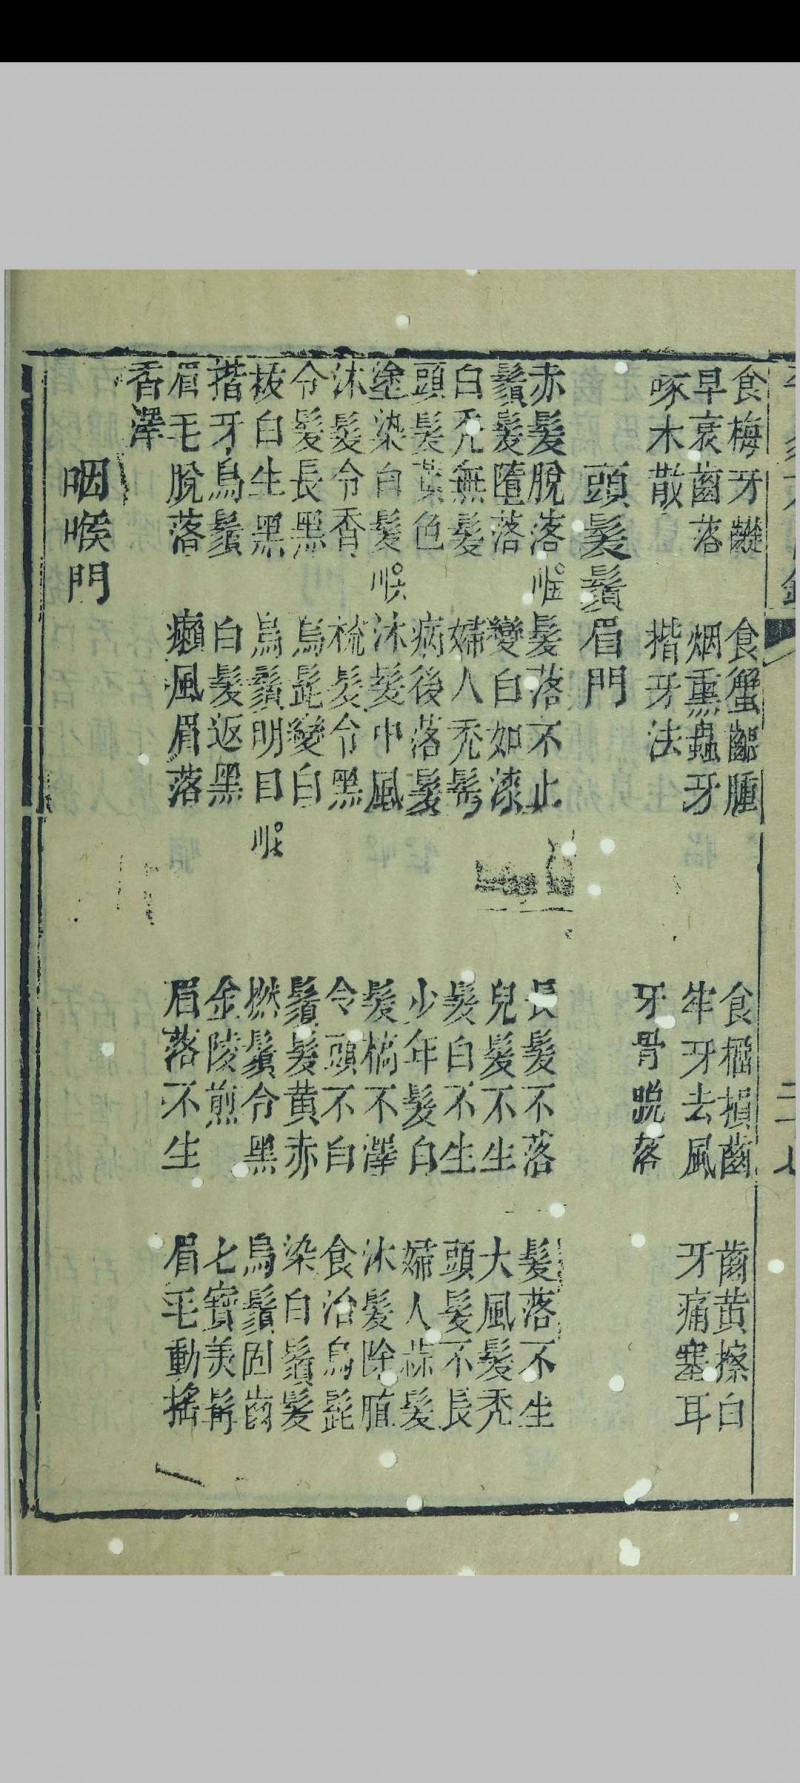 食梅牙齼　食蟹齦腫　食橘損齒　齒黄擦白
早衰齒落　烟熏蟲牙　牢牙去風　牙痛塞耳
啄木散　揩牙法　牙骨脱落
頭髪鬚眉門
赤髪脫落　髪落不止　長髪不落　髪落不生
鬚髪墮落　變白如漆　兒髪不生　大風髪禿
白禿無髪　婦人禿鬂　髪白不生　頭髪不長
頭髪黄色　病後落髪　少年髪白　婦人蒜髪
塗染白髪　沐髪中風　髪槁不澤　沐髪除
沐髪令香　梳髪令黑　令頭不白　食治烏髭
令髪長黑　烏髭變白　鬚髪黄赤　染白鬚髪
拔白生黑　烏鬚明目　撚鬚令黑　烏鬚固齒
揩牙烏鬚　白髪返黑　金陵煎　七寶美髯
眉毛脫落　癩風眉落　眉落不生　眉毛動搖
香澤
咽喉門